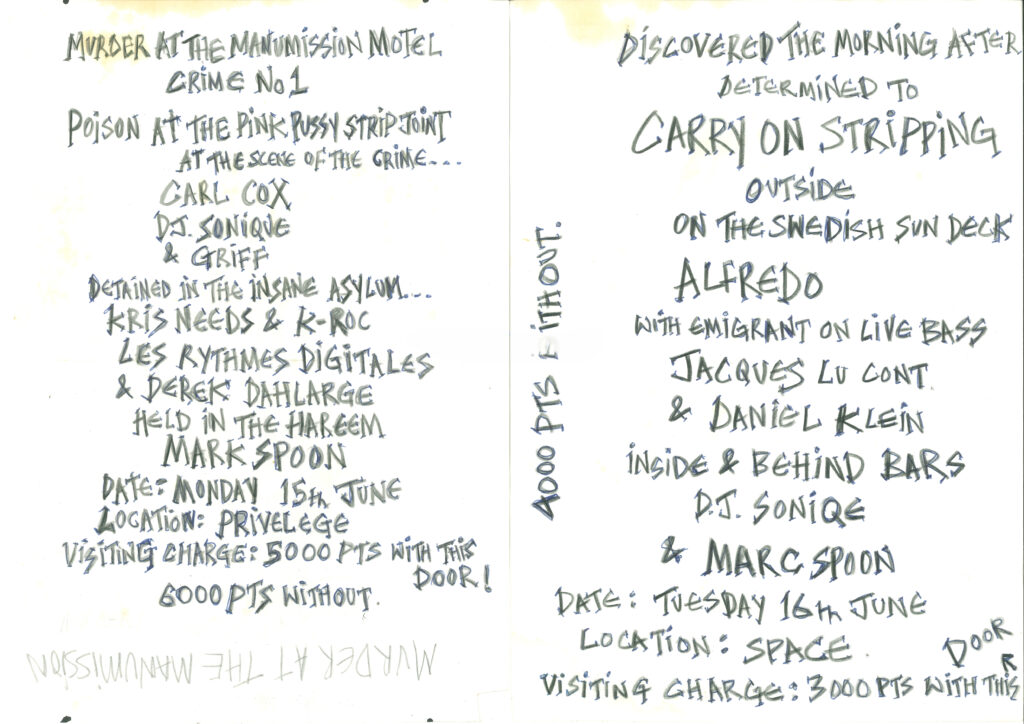 MURDER AT THE MANUMISSION MOTEL
CRIME No 1
POISON AT THE PINK PUSSY STRIP JOINT
AT THE SCENE OF THE CRIME...
CARL COX
D.J. SONIQUE
& GRIFF
DETAINED IN THE INSANE ASYLUM...
KRIS NEEDS & K-ROC
LES RYTHMES DIGITALES
& DEREK DAHLARGE
HELD IN THE HAREEM
MARK SPOON
DATE: MONDAY 15th JUNE
LOCATION: PRIVELEGE
VISITING CHARGE: 5000 PTS WITH THIS
DOOR!
6000 PTS WITHOUT.
MURDER AT THE MANUMISSION
DISCOVERED THE MORNING AFTER
DETERMINED TO
CARRY ON STRIPPING
OUTSIDE
ON THE SWEDISH SUN DECK
ALFREDO
WITH EMIGRANT ON LIVE BASS
JACQUES LU CONT
& DANIEL KLEIN
INSIDE & BEHIND BARS
D.J. SONIQE
& MARC SPOON
DATE: TUESDAY 16th JUNE
LOCATION: SPACE
VISITING CHARGE: 3000 PTS WITH THIS
DOOR
4000 PTS WITHOUT.